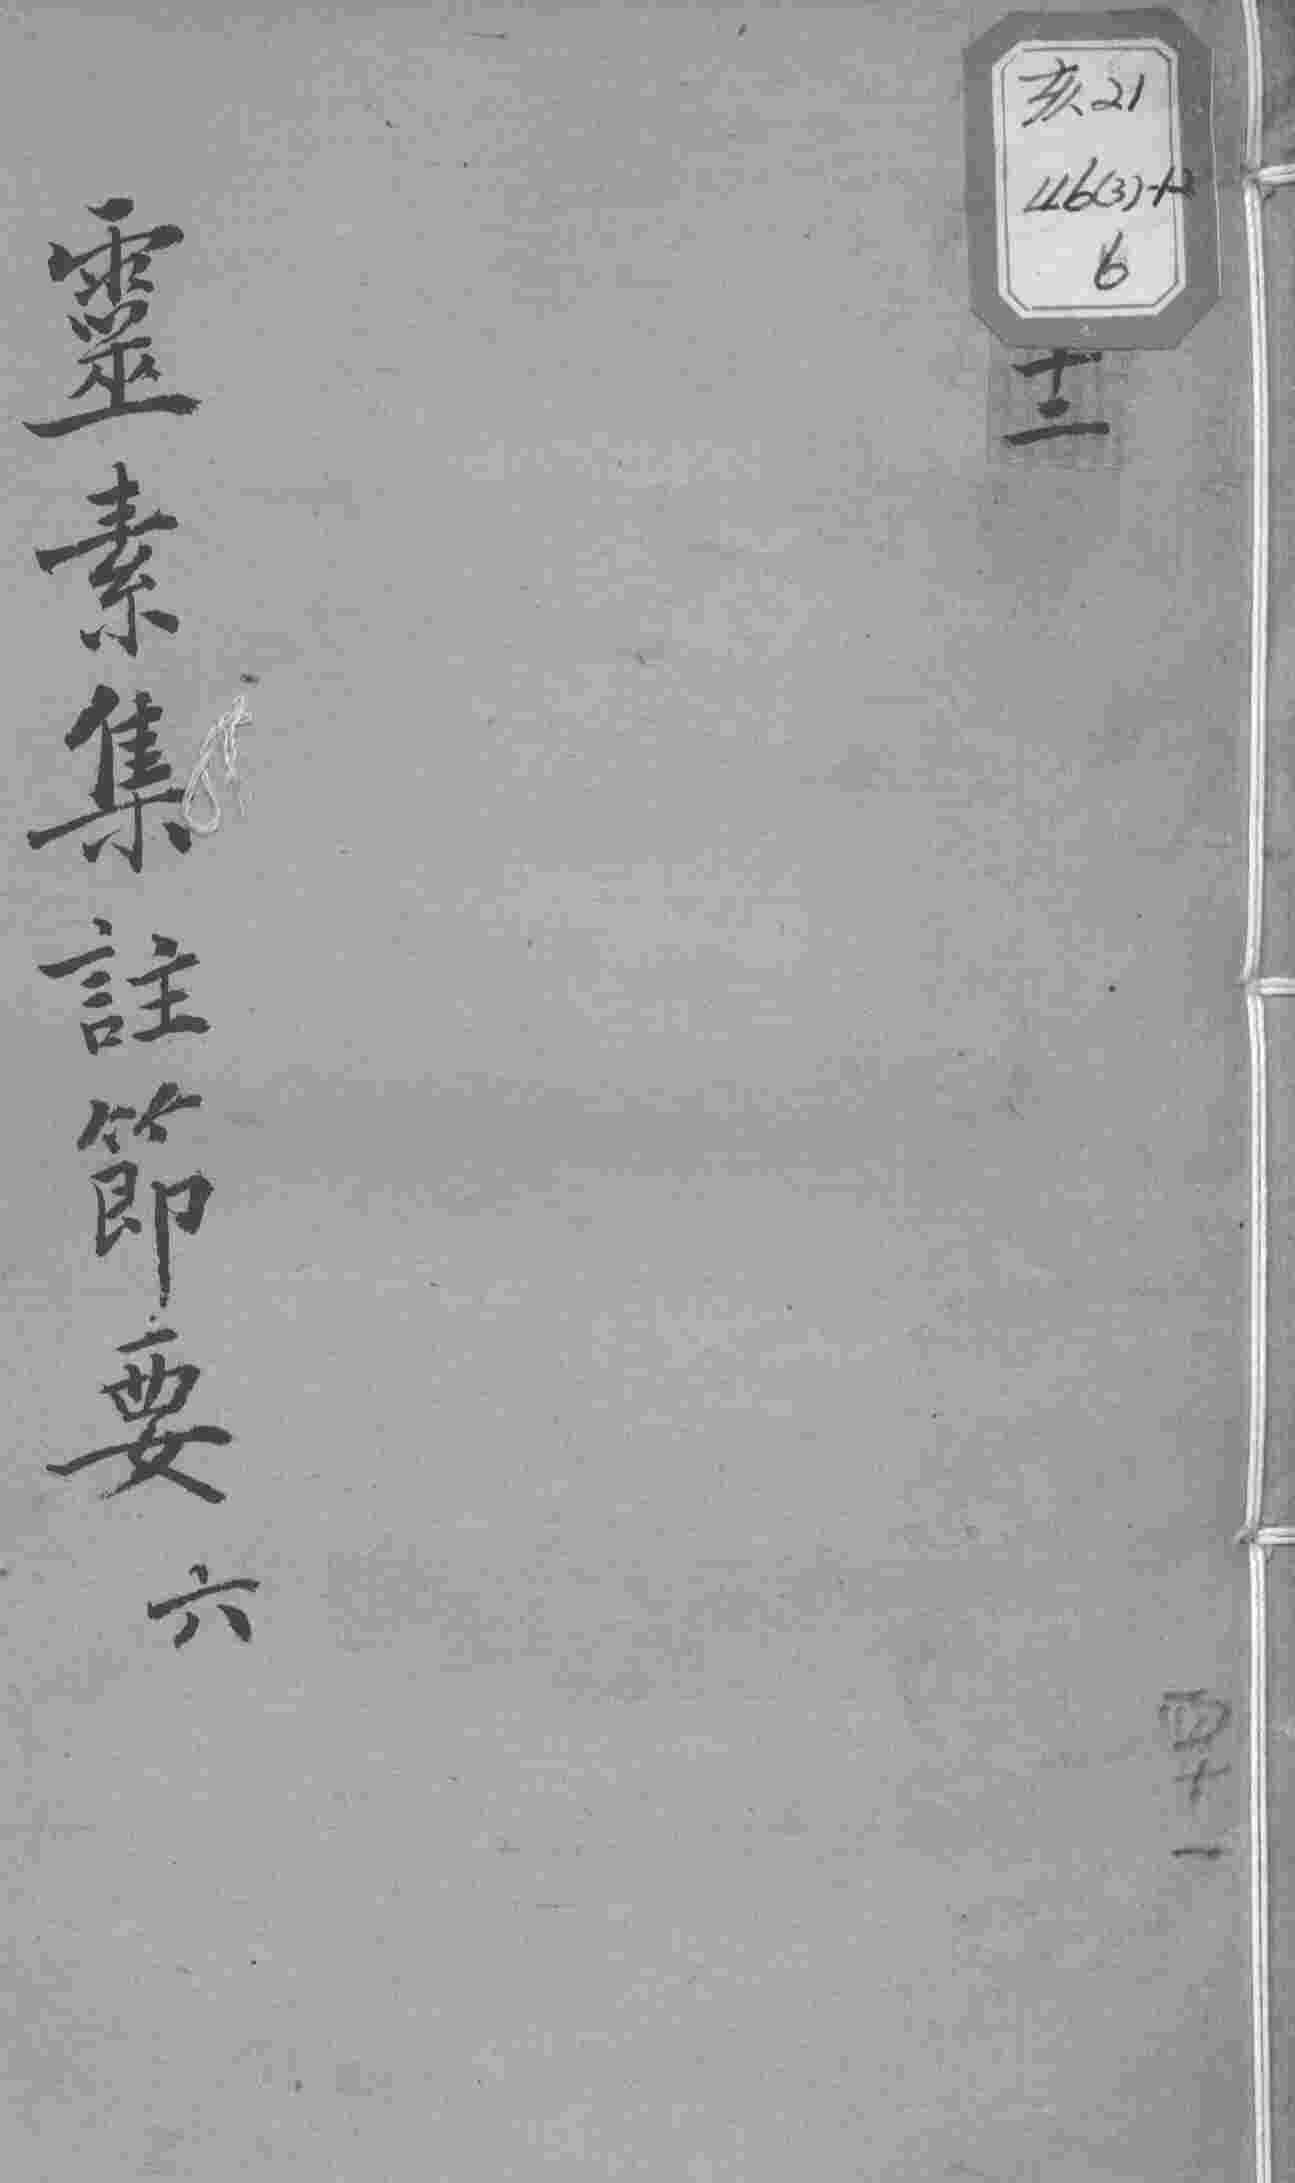 亥21
46(3)-12
6
十二
靈素集註節要 六
四十一